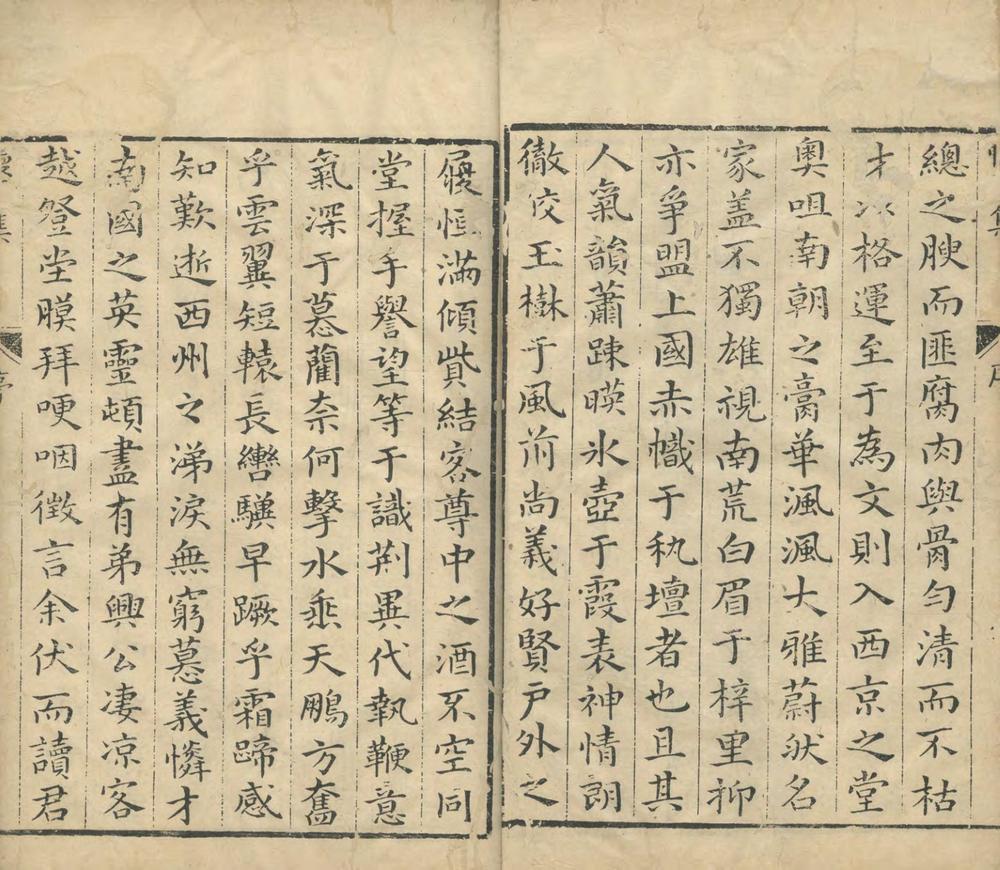 總之腴而匪腐肉與骨勻清而不枯
才冰格運至于為文則入西京之堂
奧咀南朝之膏華渢渢大雅蔚狀名
家盖不獨雄視南荒白眉于梓里抑
亦爭盟上國赤幟于秇壇者也且其
人氣韻蕭踈暎氷壺于霞表神情朗
徹佼玉樹于風前尚義好賢戶外之
屨恒滿傾貲結客尊中之酒不空同
堂握手譽望等于識荆異代執鞭意
氣深于慕藺奈何擊水垂天鵬方奮
乎雲翼短轅長轡驥早蹶乎霜蹄感
知歎逝西州之涕淚無窮慕義憐才
南國之英靈頓盡有弟興公凄凉客
越登堂膜拜哽咽徵言余伏而讀君
集